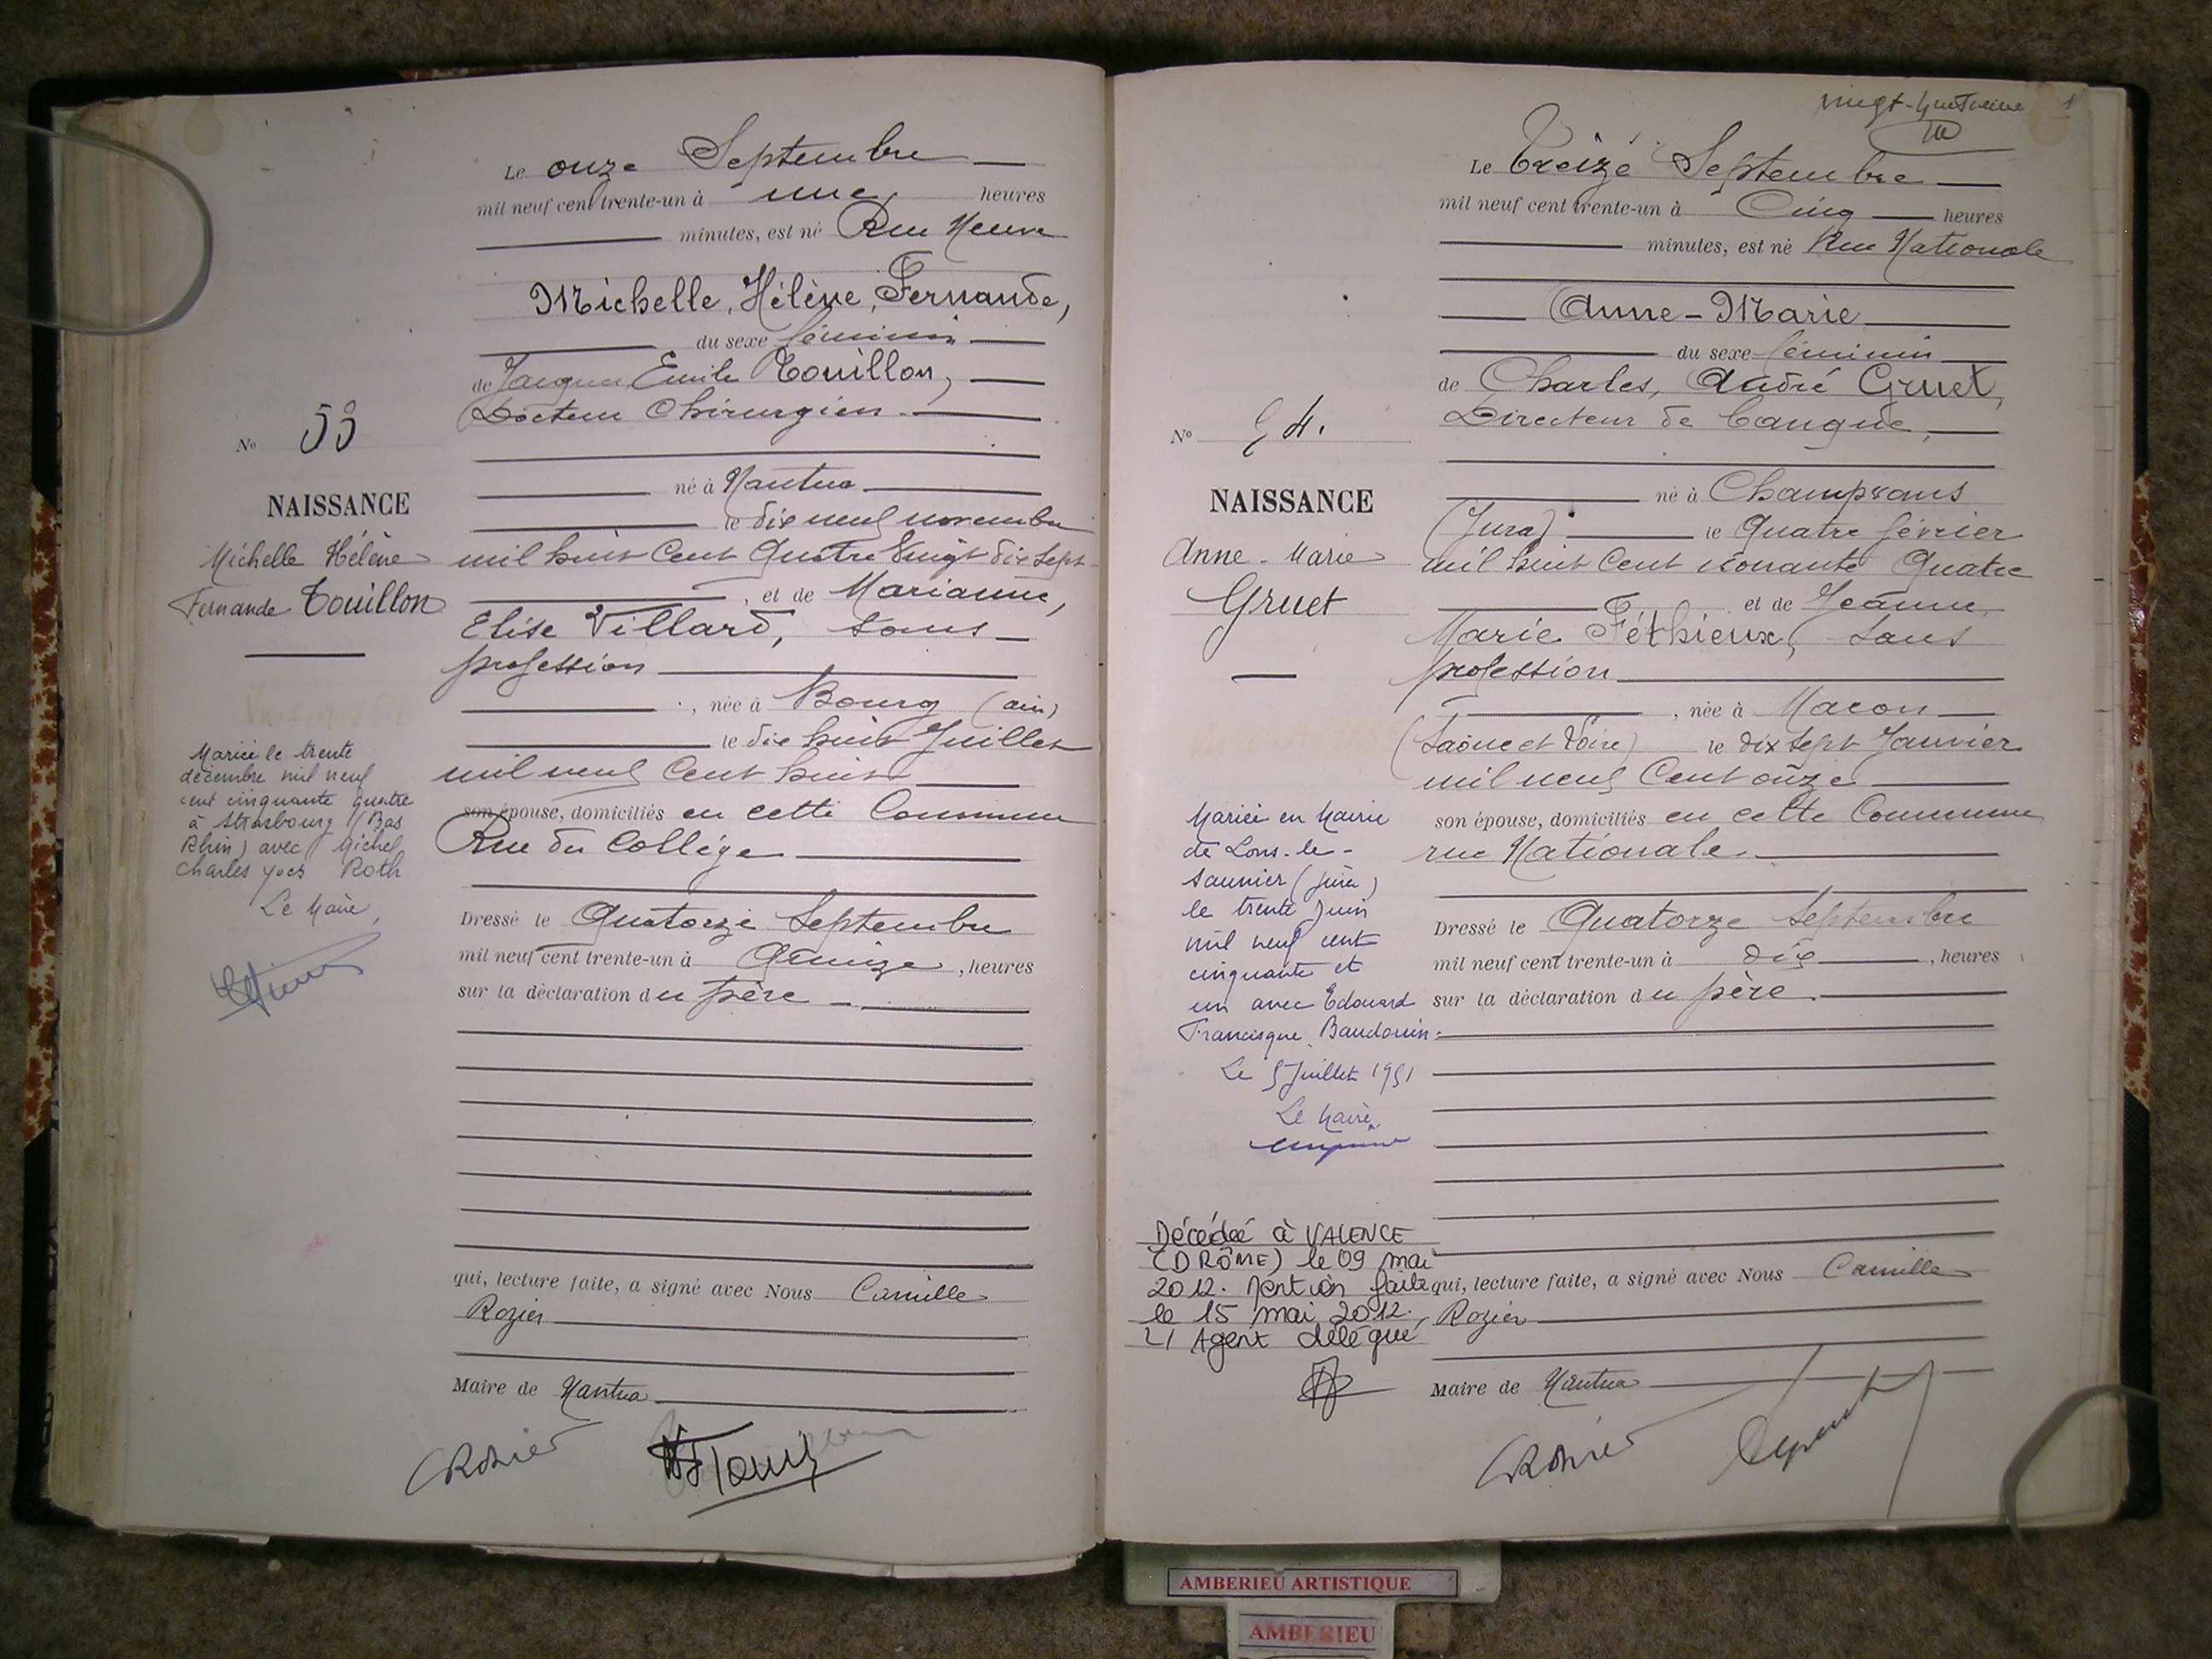 Le onze Septembre
mil neuf cent trente-un à une heures
minutes, est né Rue Neuve
Michelle, Hélène, Fernande,
du sexe féminin
de Jacques Emile Touillon,
Docteur Chirurgien.
né à Nantua
le dix neuf novembre
mil huit Cent Quatre Vingt dix sept
, et de Marianne,
Elise Villard, sans
profession
, née à Bourg (ain)
le dix huit Juillet
mil neuf Cent huit
son épouse, domiciliés en cette Commune
Rue du Collège
Dressé le Quatorze Septembre
mil neuf cent trente-un à Quinze, heures
sur la déclaration du père
qui, lecture faite, a signé avec Nous Camille
Rozier
Maire de Nantua
Rozier
No 53
NAISSANCE
Michelle Hélène
Fernande Touillon
Mariée le trente
décembre mil neuf
cent cinquante quatre
à Strasbourg (Bas
Rhin) avec Michel
Charles Yves Roth
Le Maire,
vingt-quatrième 1
Le Treize Septembre
mil neuf cent trente-un à Cinq heures
minutes, est né Rue Nationale
Anne-Marie
du sexe féminin
de Charles, André Gruet,
Directeur de Banque,
né à Champvans
(Jura) le Quatre février
mil huit Cent nonante Quatre
et de Jeanne,
Marie Féthieux, Sans
profession
, née à Macon
(Saône et Loire) le dix sept Janvier
mil neuf Cent onze
son épouse, domiciliés en cette Commune
rue Nationale.
Dressé le Quatorze Septembre
mil neuf cent trente-un à dix, heures
sur la déclaration du père.
qui, lecture faite, a signé avec Nous Camille
Rozier
Maire de Nantua
Rozier
No 54.
NAISSANCE
Anne-Marie
Gruet
Mariée en Mairie
de Lons-le-
Saunier (Jura)
le trente Juin
mil neuf cent
cinquante et
un avec Edouard
Francisque Baudouin.
Le 5 Juillet 1951
Le Maire,
Décédée à VALENCE
(DRÔME) le 09 mai
2012. Mention faite
le 15 mai 2012.
L'Agent délégué
AMBERIEU ARTISTIQUE
AMBERIEU